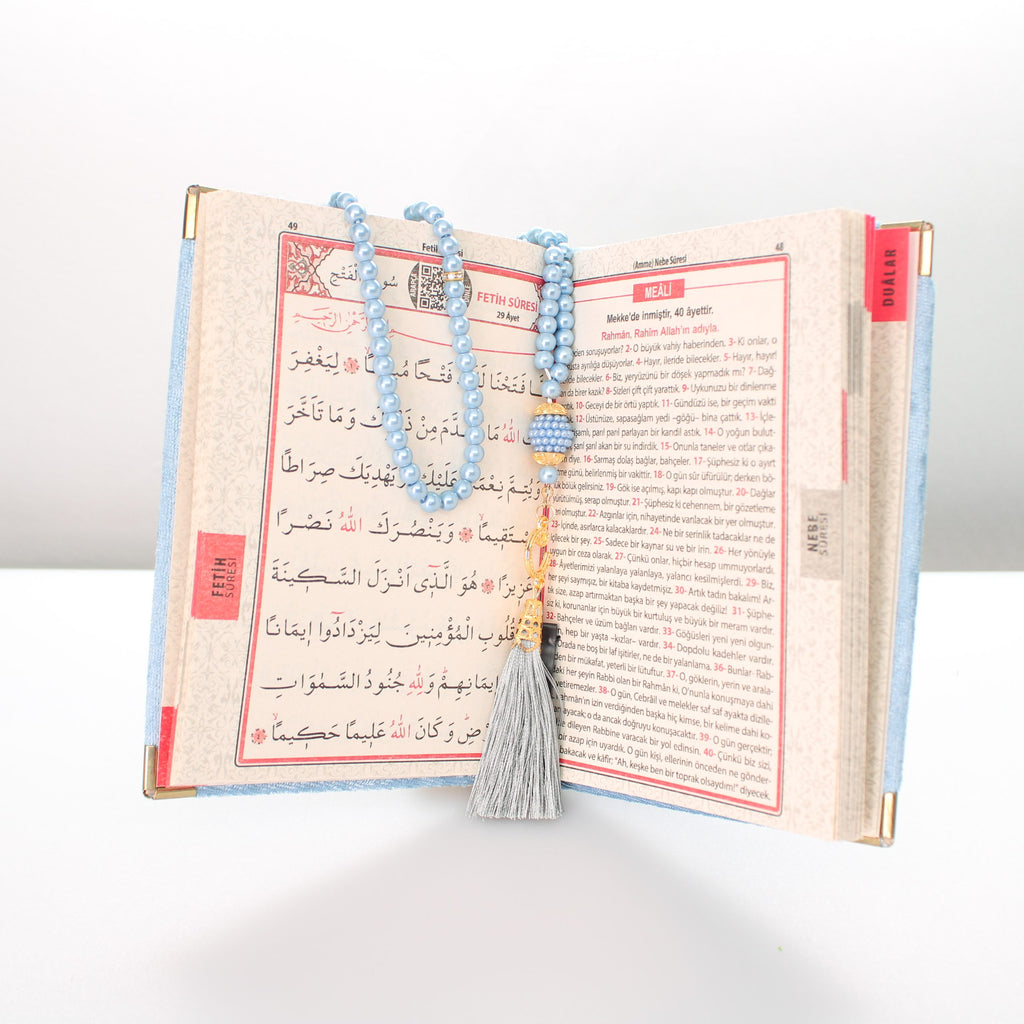 49
سُورَةُ الْفَتْحِ
FETİH SÛRESİ
29 Âyet
لِيَغْفِرَ
فَتْحًا
وَمَا تَاَخَّرَ
اللّٰهُ مَا
مِنْ
وَيُتِمَّ نِعْمَ
عَلَيْكَ وَيَهْدِيَكَ صِرَاطًا
وَيَنْصُرَكَ اللّٰهُ نَصْرًا
عَزٖيزًا هُوَ الَّذٖٓى اَنْزَلَ السَّكٖينَةَ
قُلُوبِ الْمُؤْمِنٖينَ لِيَزْدَادُٓوا اٖيمَانًا
اٖيمَانِهِمْ وَلِلّٰهِ جُنُودُ السَّمٰوَاتِ
وَكَانَ اللّٰهُ عَلٖيمًا حَكٖيمًا
FETİH
SÛRESİ
48
(Amme) Nebe Sûresi
MEÂLİ
Mekke'de inmiştir, 40 âyettir.
Rahmân, Rahîm Allah'ın adıyla.
soruşuyorlar? 2- O büyük vahiy haberinden. 3- Ki onlar, o
ayrılığa düşüyorlar. 4- Hayır, ileride bilecekler. 5- Hayır, hayır!
bilecekler. 6- Biz, yeryüzünü bir döşek yapmadık mı? 7- Dağ-
da birer kazık? 8- Sizleri çift çift yarattık. 9- Uykunuzu bir dinlenme
10- Geceyi de bir örtü yaptık. 11- Gündüzü ise, bir geçim vakti
12- Üstünüze, sapasağlam yedi –göğü– bina çattık. 13- İçle-
parıl parıl parlayan bir kandil astık. 14- O yoğun bulut-
şarıl şarıl akan bir su indirdik. 15- Onunla taneler ve otlar çıka-
diye. 16- Sarmaş dolaş bağlar, bahçeler. 17- Şüphesiz ki o ayırt
günü, belirlenmiş bir vakittir. 18- O gün sûr üfürülür; derken bö-
bölük gelirsiniz. 19- Gök ise açılmış, kapı kapı olmuştur. 20- Dağlar
yürütülmüş, serap olmuştur. 21- Şüphesiz ki cehennem, bir gözetleme
olmuştur. 22- Azgınlar için, nihayetinde varılacak bir yer olmuştur.
23- İçinde, asırlarca kalacaklardır. 24- Ne bir serinlik tadacaklar ne de
içilecek bir şey. 25- Sadece bir kaynar su ve bir irin. 26- Her yönüyle
uygun bir ceza olarak. 27- Çünkü onlar, hiçbir hesap ummuyorlardı.
28- Âyetlerimizi yalanlaya yalanlaya, yalancı kesilmişlerdi. 29- Biz,
her şeyi saymışız, bir kitaba kaydetmişiz. 30- Artık tadın bakalım! Ar-
tık size, azap artırmaktan başka bir şey yapacak değiliz! 31- Şüphe-
siz ki, korunanlar için büyük bir kurtuluş ve büyük bir meram vardır.
32- Bahçeler ve üzüm bağları vardır. 33- Göğüsleri yeni yeni olgun-
hep bir yaşta –kızlar– vardır. 34- Dopdolu kadehler vardır.
Orada ne boş bir laf işitirler, ne de bir yalanlama. 36- Bunlar- Rab-
den bir mükafat, yeterli bir lütuftur. 37- O, göklerin, yerin ve arala-
her şeyin Rabbi olan bir Rahmân ki, O'nunla konuşmaya dahi
yetiremezler. 38- O gün, Cebrâîl ve melekler saf saf ayakta dizile-
ahmân'ın izin verdiğinden başka hiç kimse, bir kelime dahi ko-
ayacak; o da ancak doğruyu konuşacaktır. 39- O gün gerçektir;
dileyen Rabbine varacak bir yol edinsin. 40- Çünkü biz sizi,
bir azap için uyardık. O gün kişi, ellerinin önceden ne gönder-
bakacak ve kâfir; "Ah, keşke ben bir toprak olsaydım!" diyecek.
NEBE
SÛRESİ
DUÂLAR